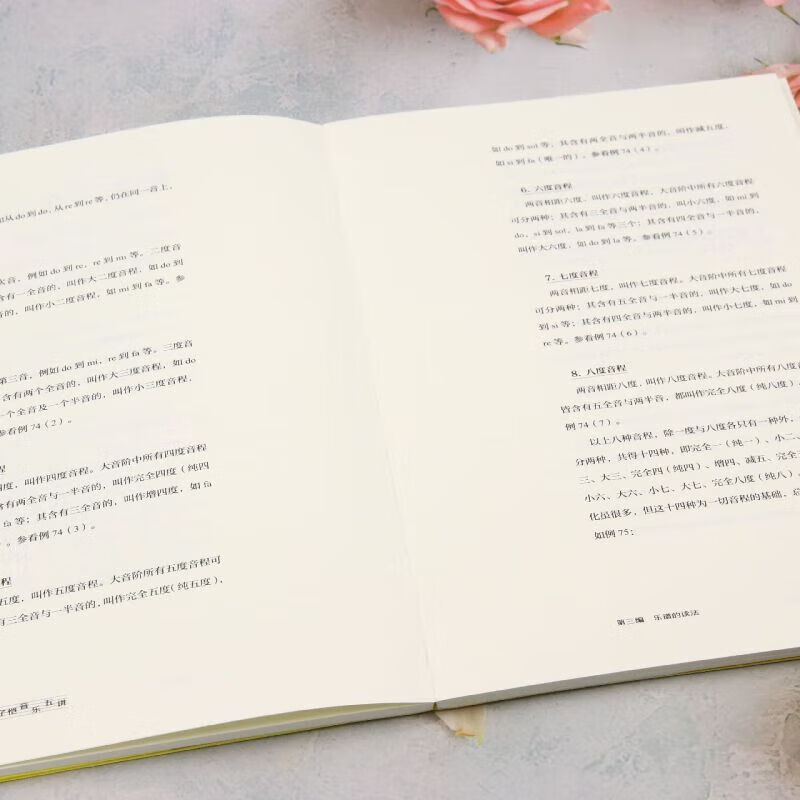 如从do到do，从re到re等，仍在同一音上，
次音，例如do到re，re到mi等。二度音
含有一全音的，叫作大二度音程，如do到
的，叫作小二度音程，如mi到fa等。参
第三音，例如do到mi，re到fa等。三度音
含有两个全音的，叫作大三度音程，如do
一个全音及一个半音的，叫作小三度音程，
参看例74（2）。
程
四度，叫作四度音程。大音阶中所有四度音程
含有两全音与一半音的，叫作完全四度（纯四
fa等；其含有三全音的，叫作增四度，如fa
）。参看例74（3）。
程
五度，叫作五度音程。大音阶所有五度音程可
有三全音与一半音的，叫作完全五度（纯五度），
音乐五讲
如do到sol等；其含有两全音与两半音的，叫作减五度，
如si到fa（唯一的）。参看例74（4）。
6. 六度音程
两音相距六度，叫作六度音程，大音阶中所有六度音程
可分两种：其含有三全音与两半音的，叫小六度，如mi到
do、si到sol、la到fa等三个；其含有四全音与一半音的，
叫作大六度，如do到la等。参看例74（5）。
7. 七度音程
两音相距七度，叫作七度音程。大音阶中所有七度音程
可分两种：其含有五全音与一半音的，叫作大七度，如do
到si等；其含有四全音与两半音的，叫作小七度，如mi到
re等。参看例74（6）。
8. 八度音程
两音相距八度，叫作八度音程。大音阶中所有八度音
皆含有五全音与两半音，都叫作完全八度（纯八度），
例74（7）。
以上八种音程，除一度与八度各只有一种外，
分两种，共得十四种，即完全一（纯一）、小二、
三、大三、完全四（纯四）、增四、减五、完全五
小六、大六、小七、大七、完全八度（纯八），
化虽很多，但这十四种为一切音程的基础，总
如例75：
第三编 乐谱的读法